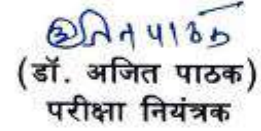 अजित पाठक
(डॉ. अजित पाठक)
परीक्षा नियंत्रक